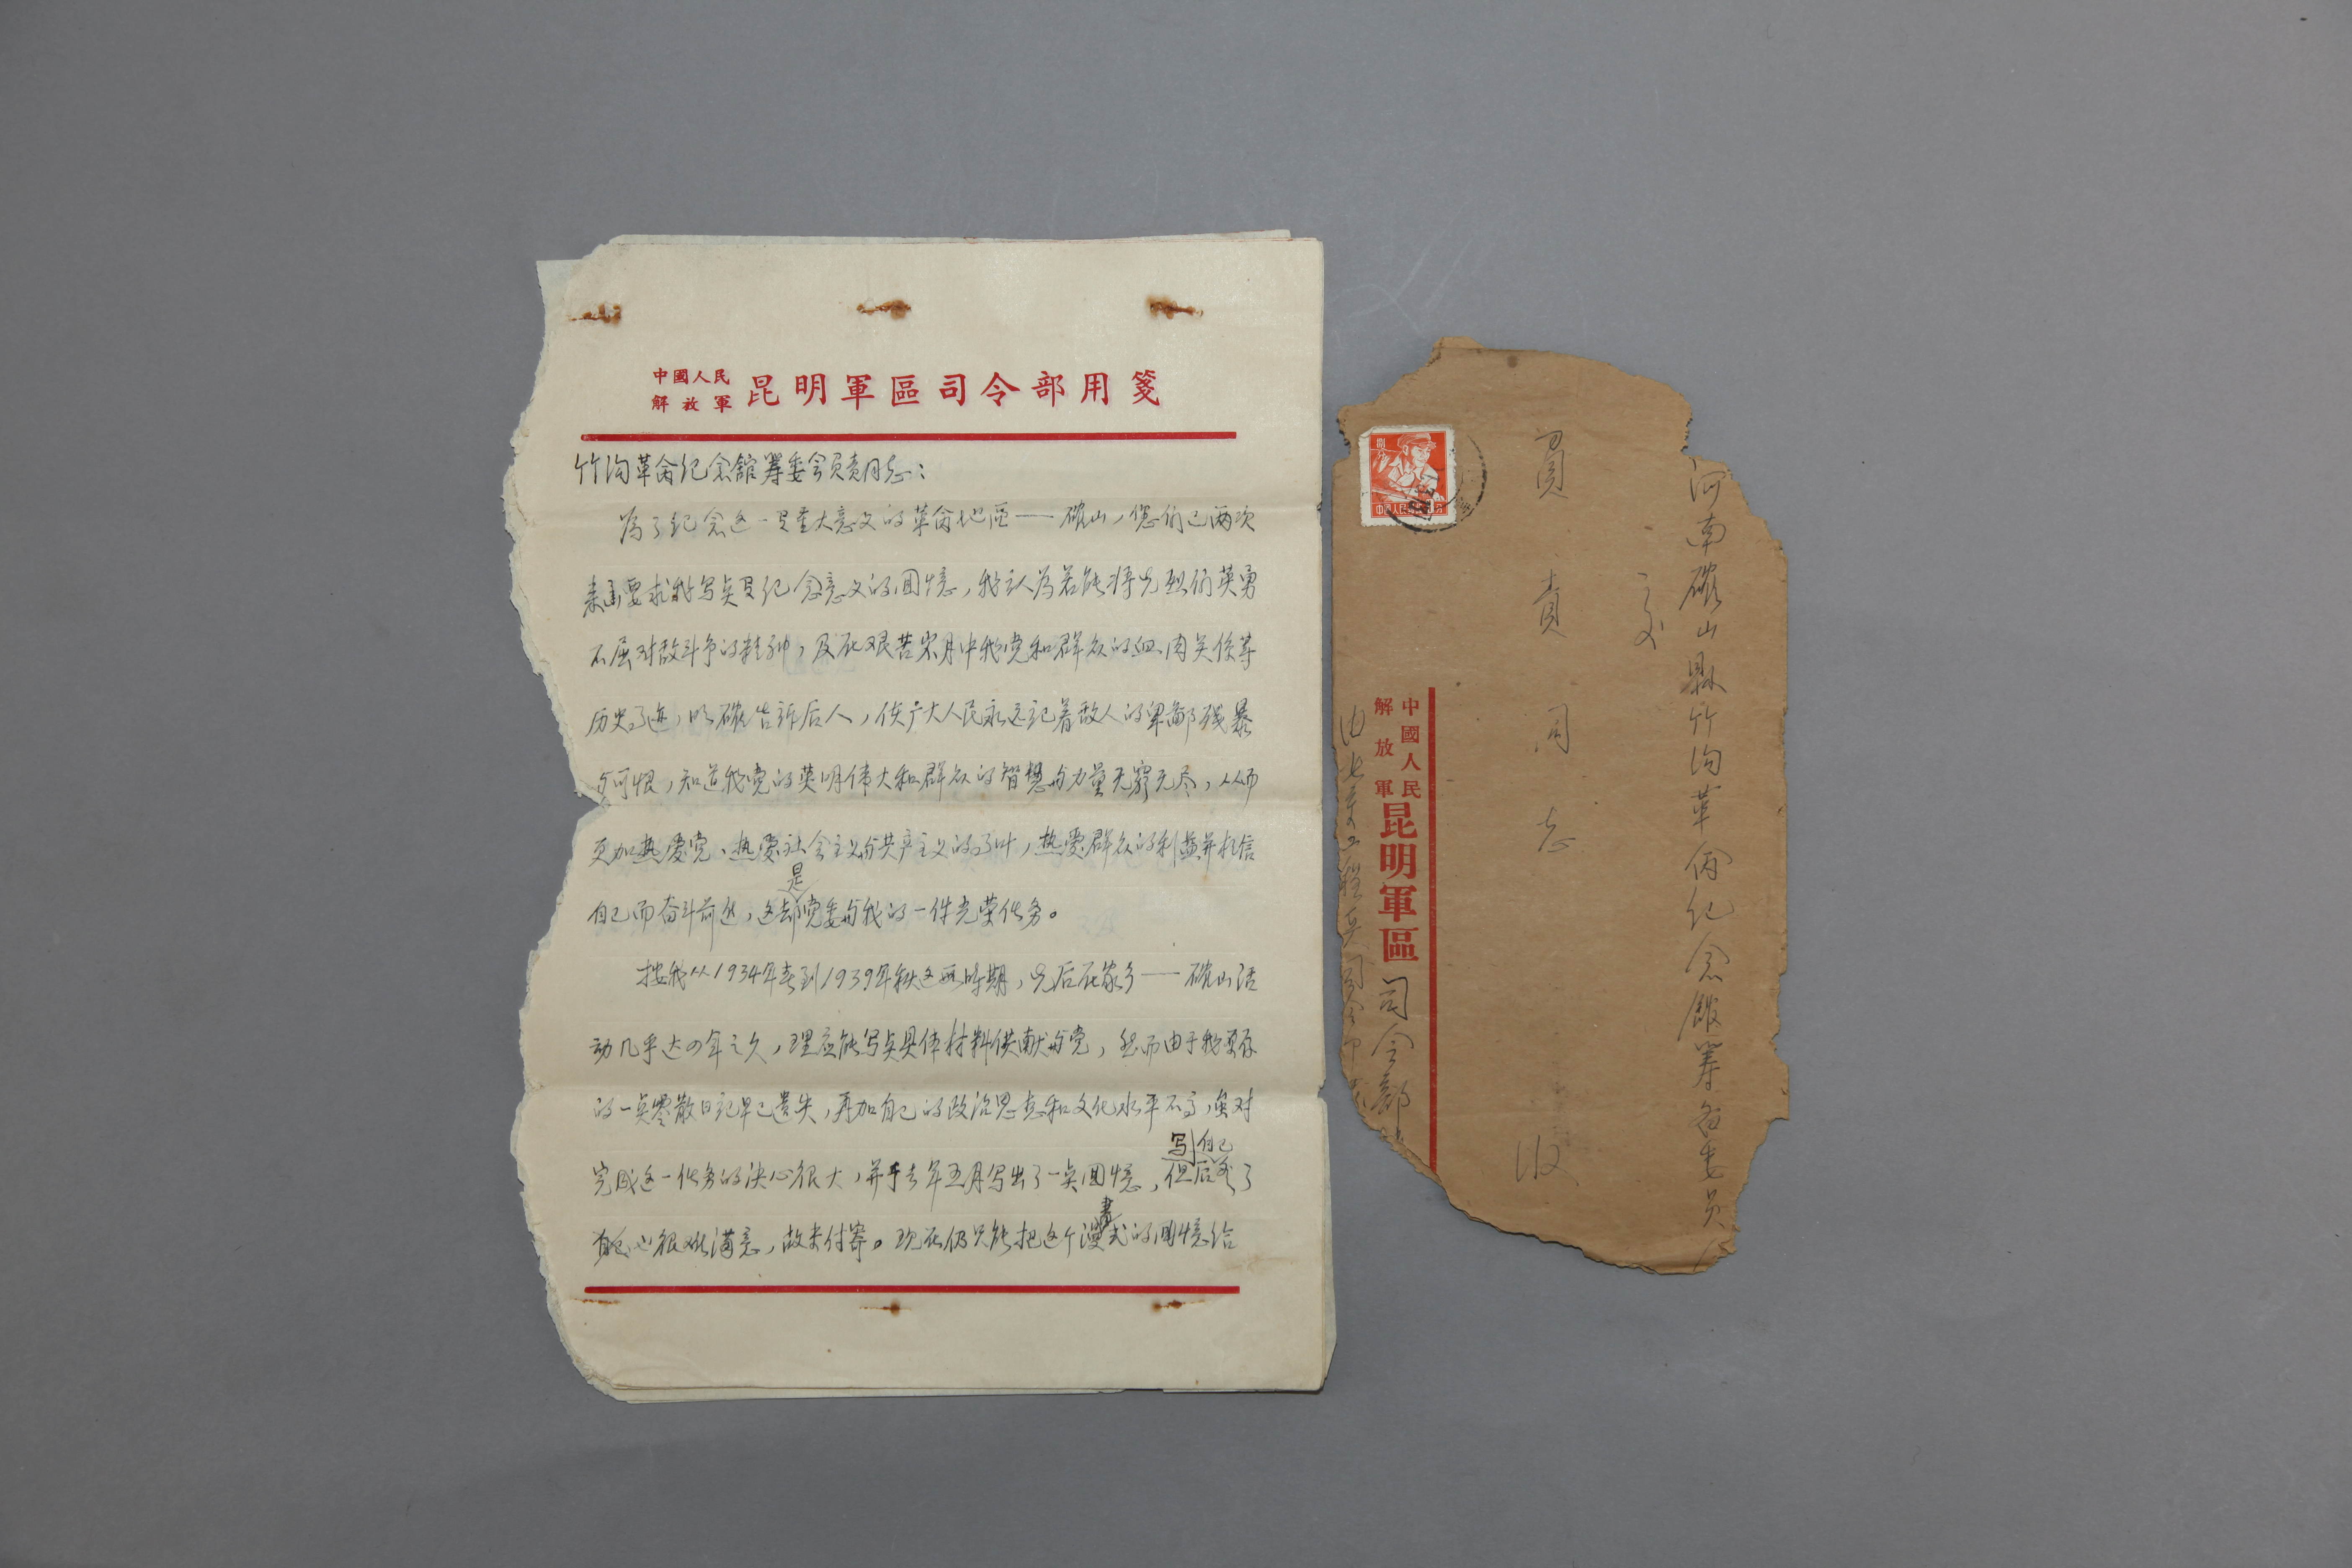 中國人民
解放軍
昆明軍區司令部用箋
竹沟革命纪念館筹委会负责同志:
为了纪念这一具重大意义的革命地区——确山,您们已两次
来函要求我写点具纪念意义的回憶,我认为若能将先烈们英勇
不屈对敌斗争的精神,及在艰苦岁月中我党和群众的血肉关係等
历史事迹,明确告訴后人,使广大人民永远记着敌人的卑鄙残暴
与可恨,知道我党的英明偉大和群众的智慧与力量无窮无尽,从而
更加热爱党、热爱社会主义与共产主义的事业,热爱群众的利益并相信
是
自己而奋斗前进,这却党委与我的一件光荣任务。
按我从1934年春到1939年秋这一时期,先后在家乡——确山活
动几乎达四年之久,理应能写点具体材料供献与党,然而由于我原存
的一点零散日记早已遗失,再加自己的政治思想和文化水平不高,虽对
写 自己
完成这一任务的决心很大,并于去年五月写出了一点回憶,但后了
畫
自己也很难满意,故未付寄。现在仍只能把这个漫式的回憶给
河南確山縣竹沟革命纪念館筹备委员
交
負責同志
收
中國人民
解放軍
昆明軍區司令部
中国人民邮政
捌分